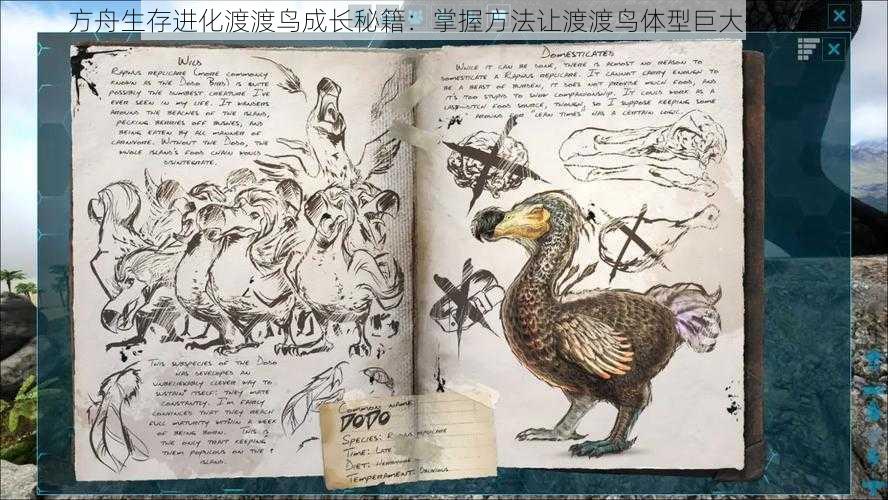 方舟生存进化渡渡鸟成长秘籍：掌握方法让渡渡鸟体型巨大
Wild
Raphus replicare (more commonly
known as the Dodo Bird) is quite
possibly the dumbest creature I've
ever seen in my life. It wanders
around the beaches of the island,
pecking berries off bushes, and
being eaten by all manner of
carnivore. Without the Dodo, the
whole island's food chain would
disintegrate.
This subspecies of the Dodo
has developed an
unbelievably clever way to
sustain itself: they mate
constantly. I'm fairly
convinced that they reach
full maturity within a week
of being born. This is
the only trait keeping
them populous on the
island.
Domesticated
While it can be done, there is almost no reason to
domesticate a Raphus replicare. It cannot carry enough to
be a beast of burden, it does not provide much food, and
it's too stupid to show companionship. It could work as a
last-ditch food source, though, so I suppose keeping some
around for "lean times" has a certain logic.
Common name
DODO
Species: Raphus replicare
Time: Late
Diet: Herbivore
Temperament: Oblivious